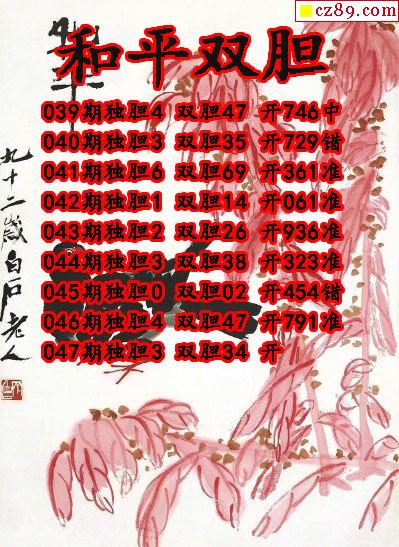 cz89.com
和平双胆
039期独胆4 双胆47 开746中
040期独胆3 双胆35 开729错
041期独胆6 双胆69 开361准
042期独胆1 双胆14 开061准
043期独胆2 双胆26 开936准
044期独胆3 双胆38 开323准
045期独胆0 双胆02 开454错
046期独胆4 双胆47 开791准
047期独胆3 双胆34 开
九十二岁白石老人